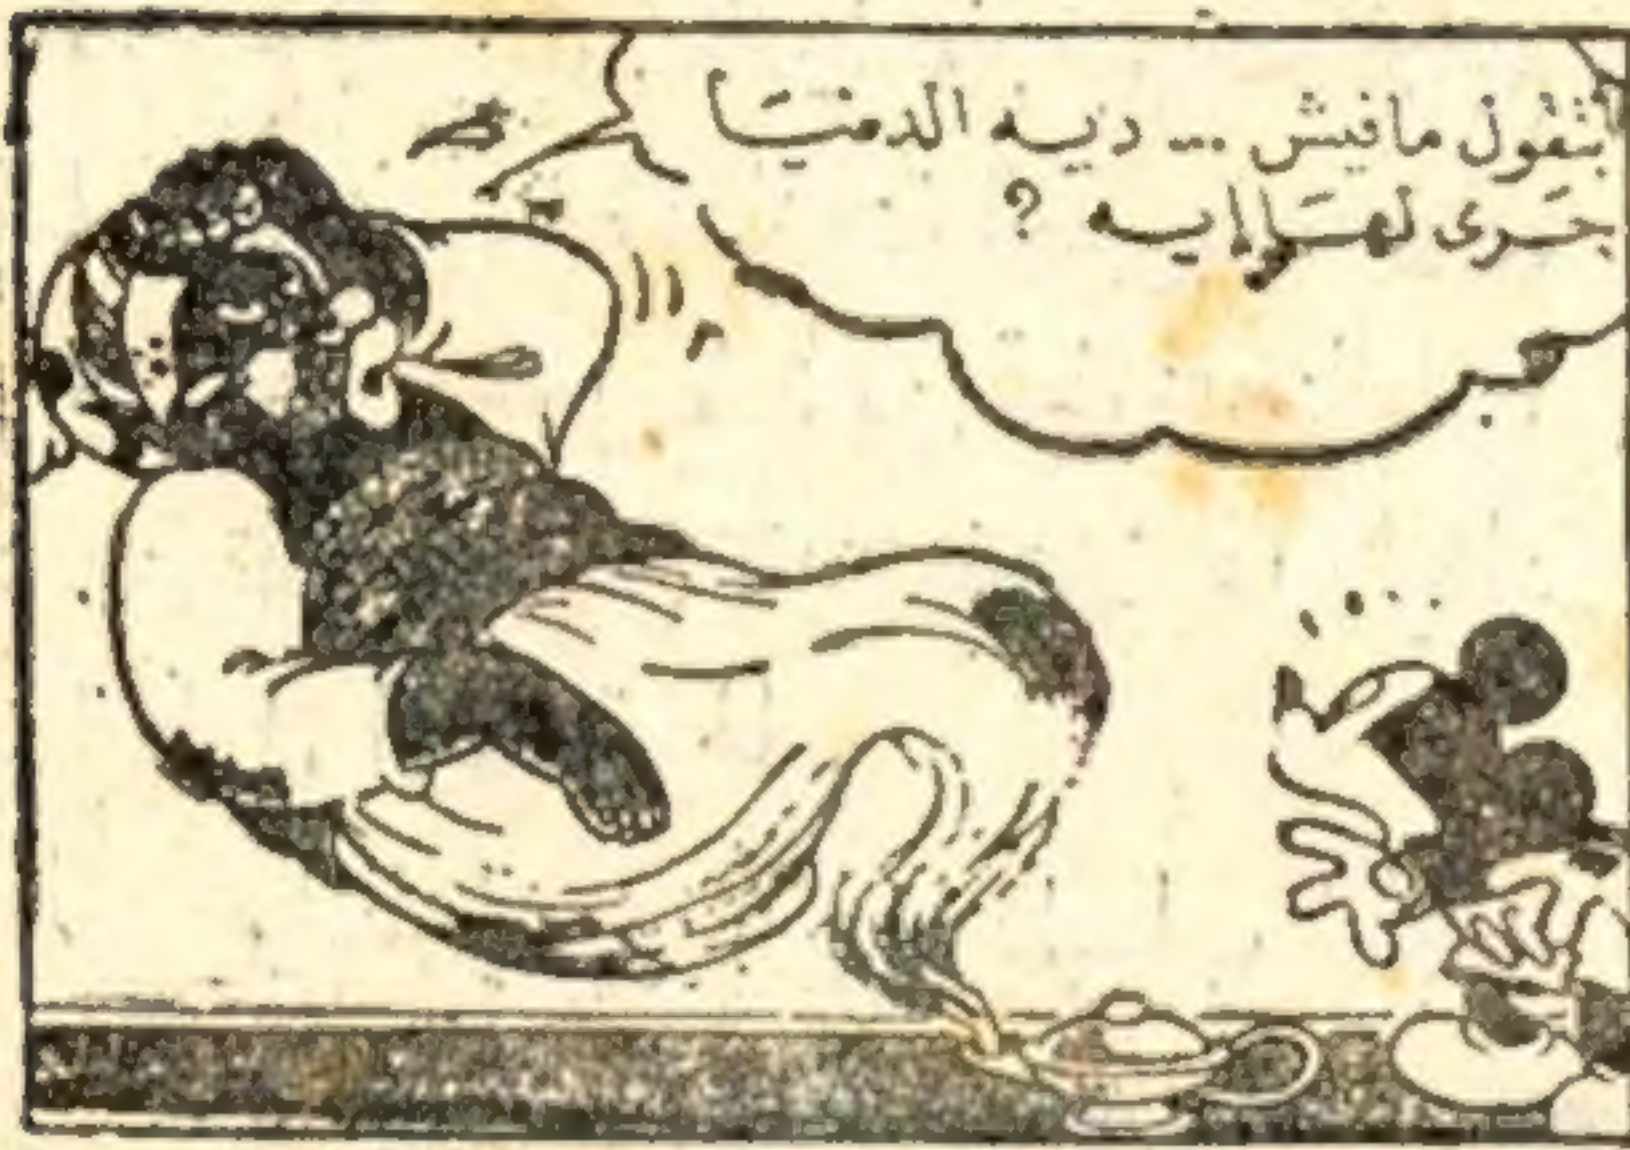 بتقول مافيش ... ديه الدنيا
جَرى لهَا إيه ?